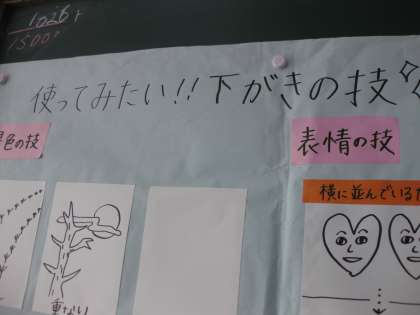 使ってみたい!!下がきの技
色の技
表情の技
横に並んでいる
重ない